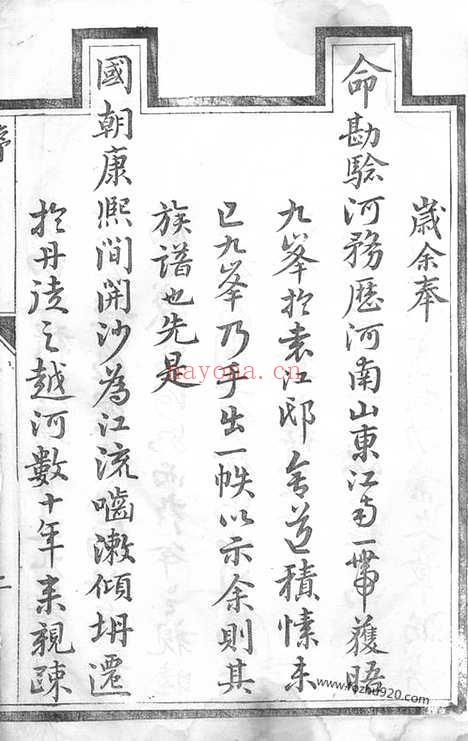 歲余奉
命勘騐河務歷河南山東江南一帶獲晤
九峯扵袁江邸舍道積愫未
已九峯乃手出一帙以示余則其
族譜也先是
國朝康熙間開沙為江流嚙漱傾坍遷
扵丹徒之越河數十年來親疎
序
nayona.cn